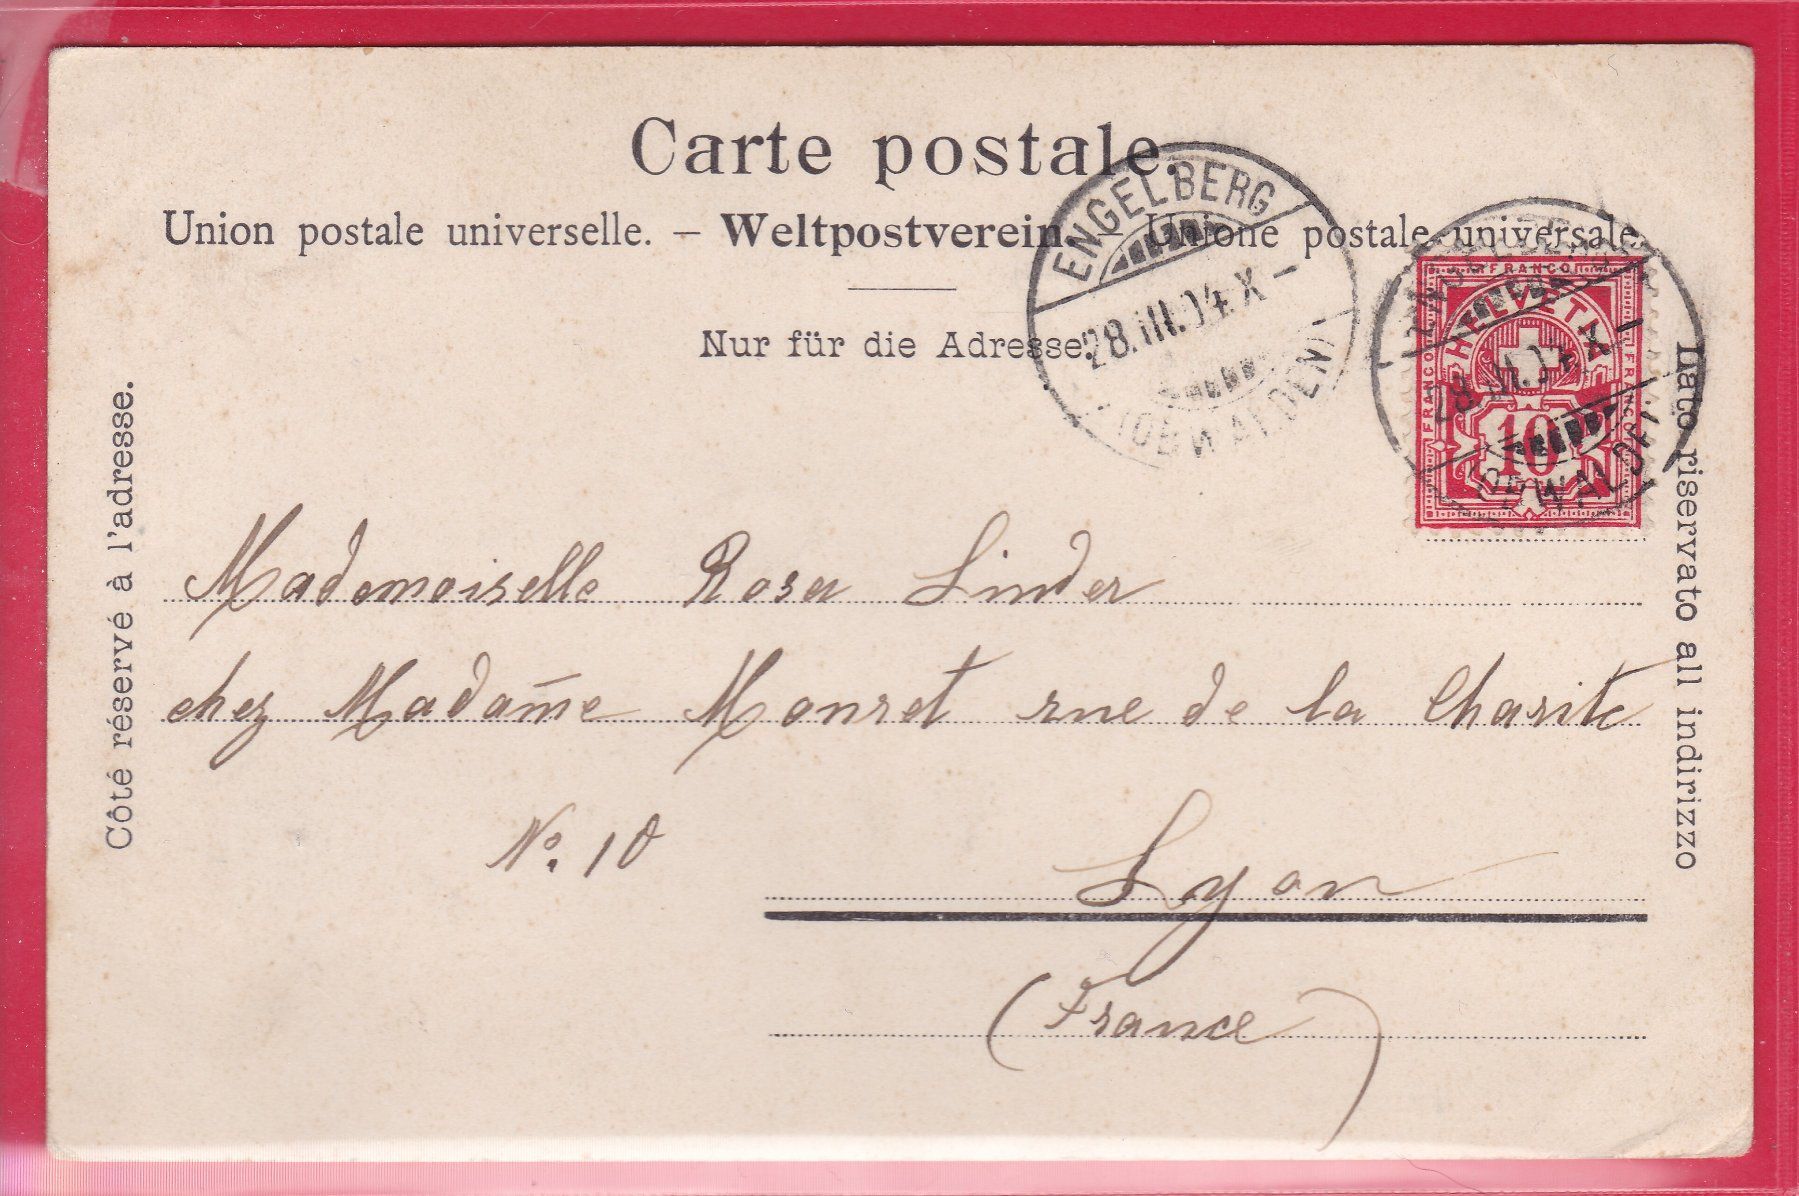 Carte postale.
Union postale universelle. – Weltpostverein. Unione postale universale.
Nur für die Adresse.
Côté réservé à l'adresse.
Lato riservato all indirizzo
ENGELBERG
28.III.04.X–
(OBWALDEN)
ENGELBERG
28.III.04.X–
(OBWALDEN)
FRANCO
FRANCO
FRANCO
HELVETIA
10
Mademoiselle Rosa Linder
chez Madam̄e Monret rue de la Charite
No. 10
Lyon
(France)